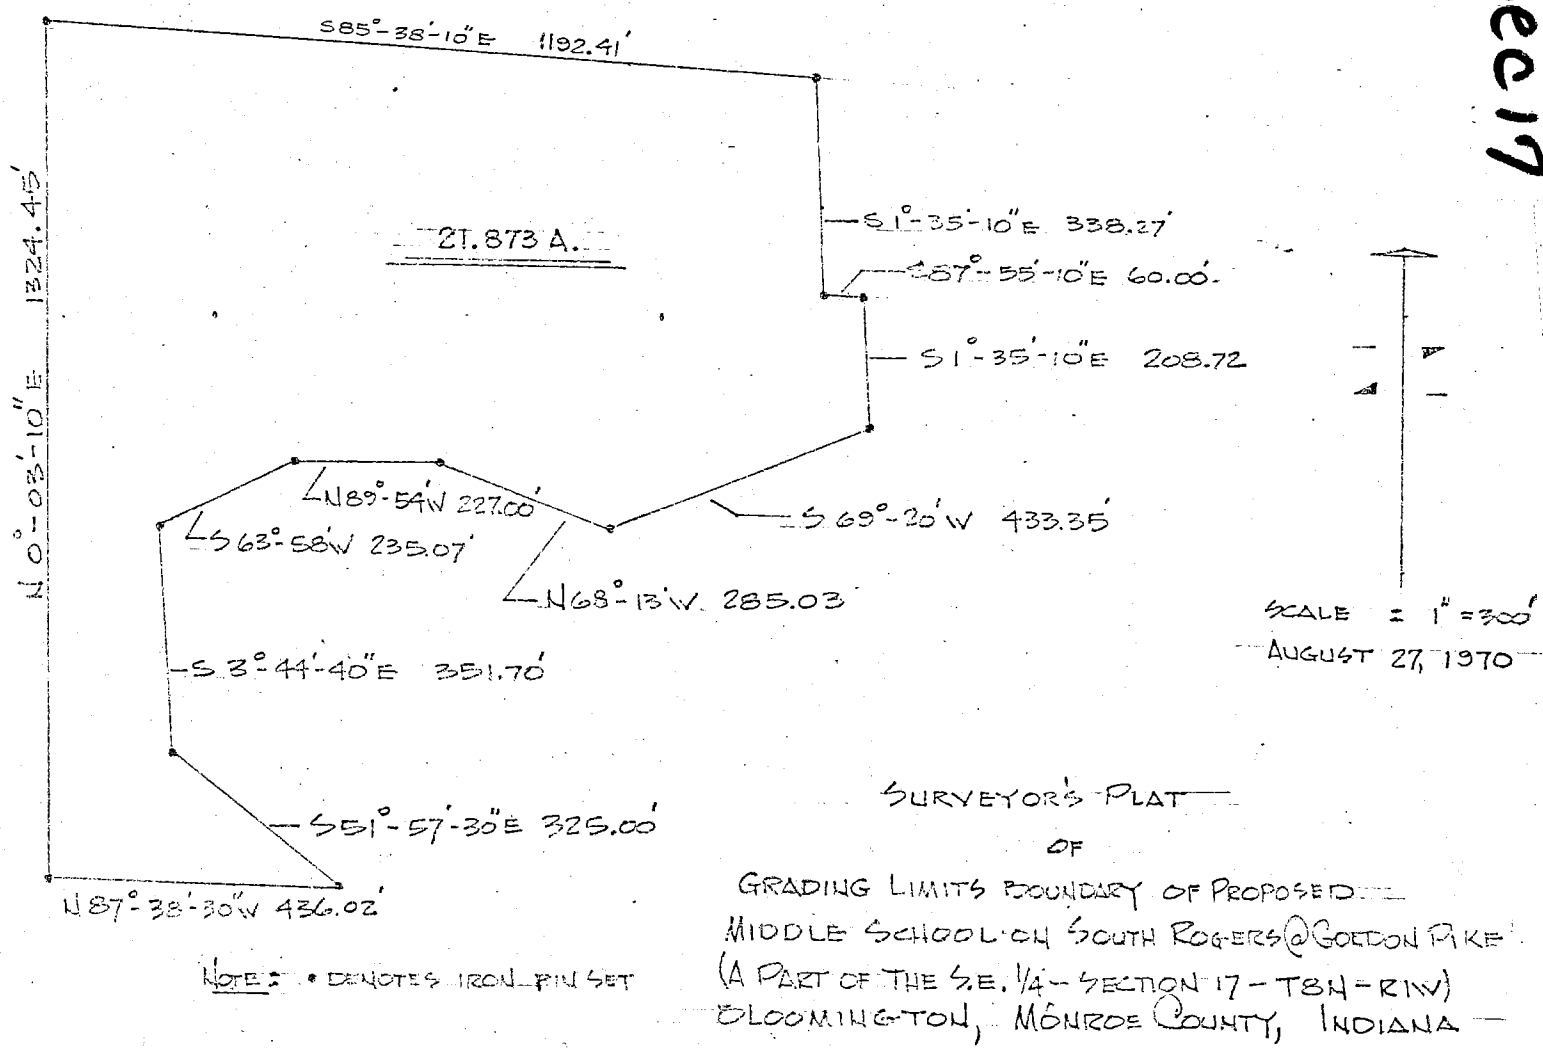 S85°-38'-10"E 1192.41'
ec 17
N 0°-03'-10"E 1324.45'
27.873 A.
S1°-35'-10"E 338.27'
S87°-55'-10"E 60.00'
S1°-35'-10"E 208.72
N89°-54'W 227.00'
S63°-58'W 235.07'
S 69°-20'W 433.35'
N68°-13'W. 285.03'
SCALE = 1" = 300'
AUGUST 27, 1970
S 3°-44'-40"E 351.70'
S51°-57'-30"E 325.00'
N87°-38'-30"W 436.02'
NOTE: • DENOTES IRON PIN SET
SURVEYOR'S PLAT
OF
GRADING LIMITS BOUNDARY OF PROPOSED
MIDDLE SCHOOL ON SOUTH ROGERS @ GORDON PIKE
(A PART OF THE S.E. 1/4 - SECTION 17 - T8N - R1W)
BLOOMINGTON, MONROE COUNTY, INDIANA